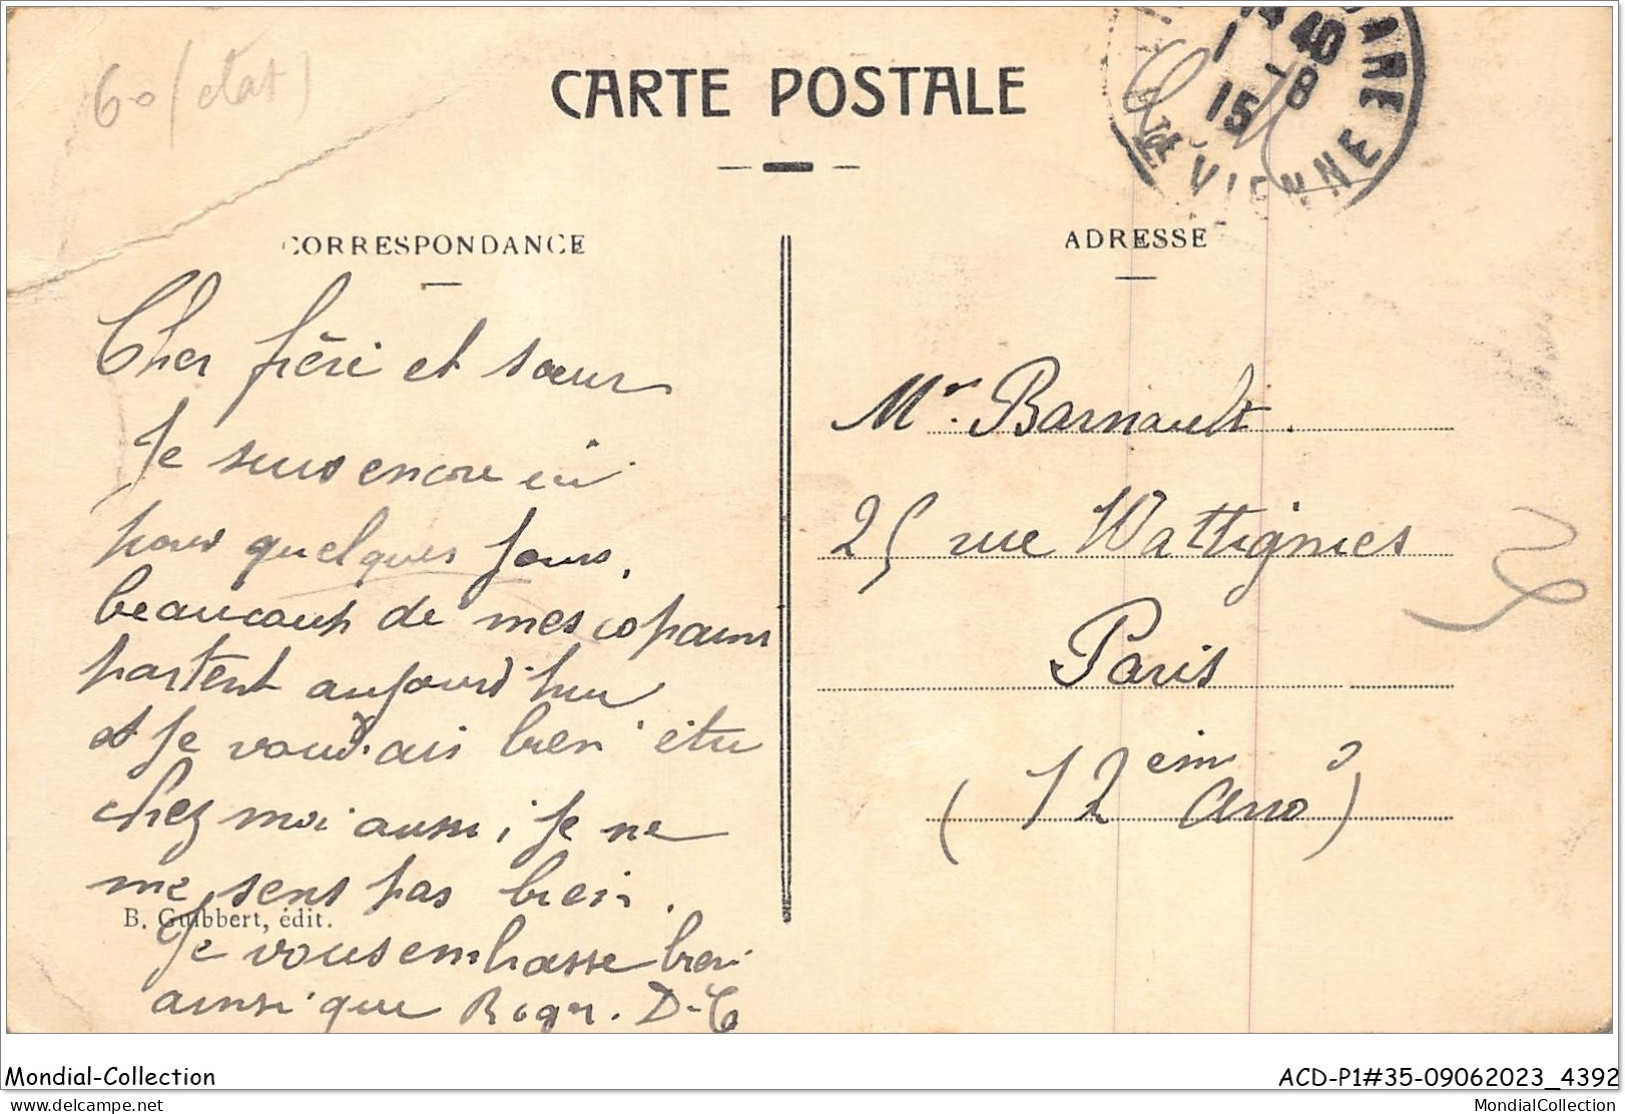 60 (état)
CARTE POSTALE
14 40
1 -8
15
GARE
Hte VIENNE
CORRESPONDANCE
ADRESSE
Cher frère et sœur
Je suis encore ici
pour quelques jours,
beaucoup de mes copains
partent aujourd'hui
et je voudrais bien être
chez moi aussi, je ne
me sens pas bien.
B. Guibbert, édit.
Je vous embrasse bien
ainsi que Roger. D-C
Mr. Barnault.
25 rue Wattignies
Paris
(12 eim Arro)
Mondial-Collection
ACD-P1#35-09062023_4392
MondialCollection